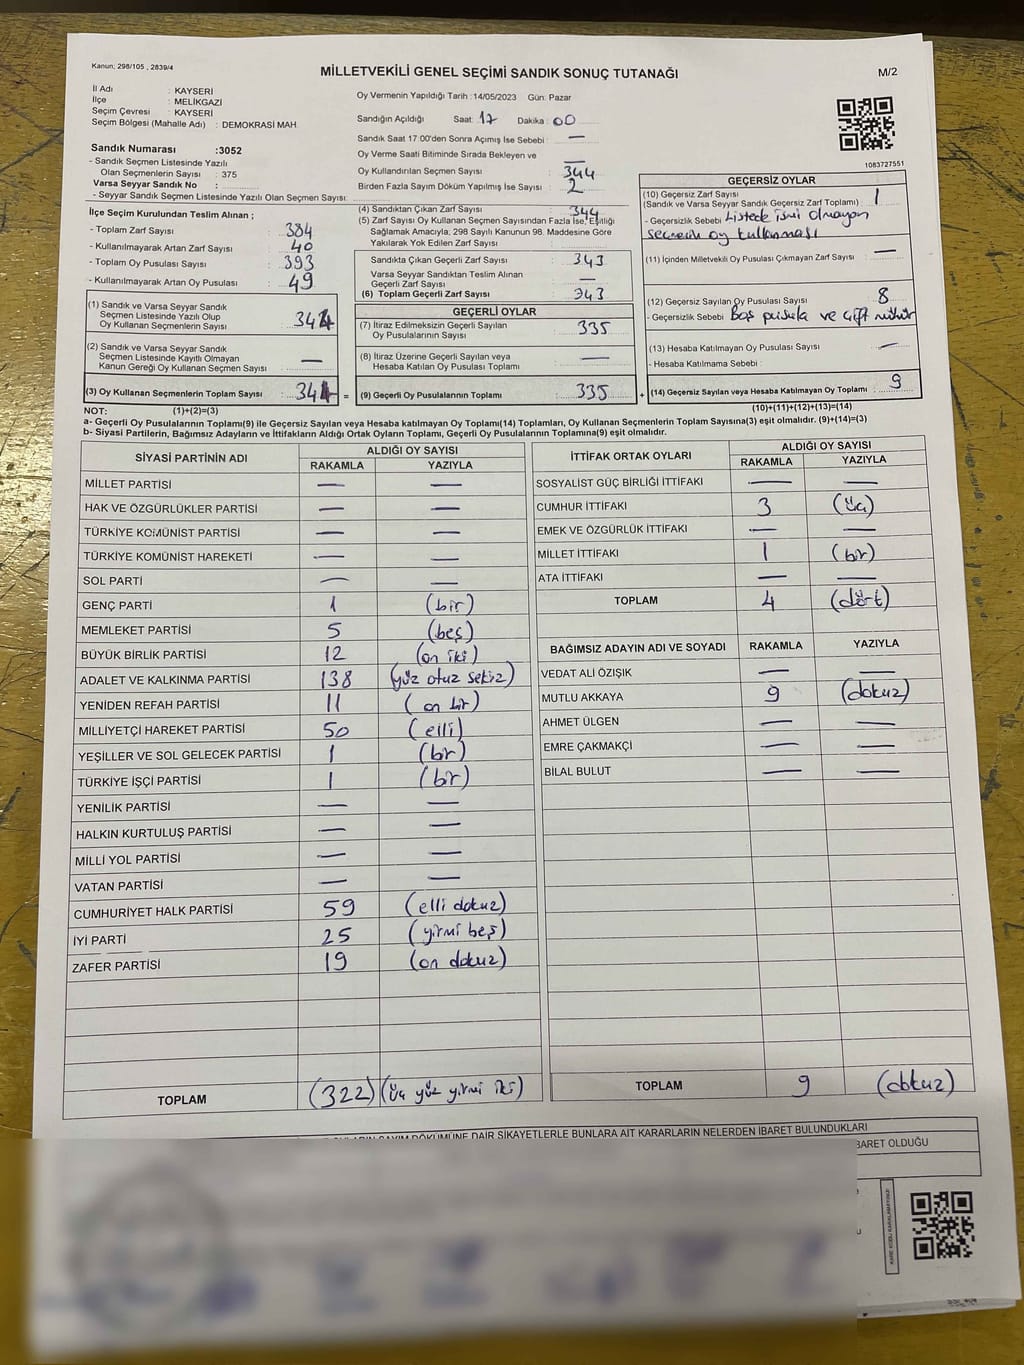 Kanun; 298/105 , 2839/4
MİLLETVEKİLİ GENEL SEÇİMİ SANDIK SONUÇ TUTANAĞI
M/2
İl Adı : KAYSERİ
İlçe : MELİKGAZİ
Seçim Çevresi : KAYSERİ
Seçim Bölgesi (Mahalle Adı) : DEMOKRASİ MAH.
Sandık Numarası :3052
- Sandık Seçmen Listesinde Yazılı
Olan Seçmenlerin Sayısı : 375
Varsa Seyyar Sandık No :
- Seyyar Sandık Seçmen Listesinde Yazılı Olan Seçmen Sayısı:
Oy Vermenin Yapıldığı Tarih :14/05/2023 Gün: Pazar
Sandığın Açıldığı Saat: 17 Dakika : 00
Sandık Saat 17:00'den Sonra Açımış İse Sebebi : —
Oy Verme Saati Bitiminde Sırada Bekleyen ve
Oy Kullandırılan Seçmen Sayısı : —
Birden Fazla Sayım Döküm Yapılmış İse Sayısı : 2
1083727551
İlçe Seçim Kurulundan Teslim Alınan ;
- Toplam Zarf Sayısı : 384
- Kullanılmayarak Artan Zarf Sayısı : 40
- Toplam Oy Pusulası Sayısı : 393
- Kullanılmayarak Artan Oy Pusulası : 49
(1) Sandık ve Varsa Seyyar Sandık
Seçmen Listesinde Yazılı Olup
Oy Kullanan Seçmenlerin Sayısı : 344
(2) Sandık ve Varsa Seyyar Sandık
Seçmen Listesinde Kayıtlı Olmayan
Kanun Gereği Oy Kullanan Seçmen Sayısı : —
(3) Oy Kullanan Seçmenlerin Toplam Sayısı : 344 =
(4) Sandıktan Çıkan Zarf Sayısı : 344
(5) Zarf Sayısı Oy Kullanan Seçmen Sayısından Fazla İse, Eşitliği
Sağlamak Amacıyla, 298 Sayılı Kanunun 98. Maddesine Göre
Yakılarak Yok Edilen Zarf Sayısı :
Sandıkta Çıkan Geçerli Zarf Sayısı : 343
Varsa Seyyar Sandıktan Teslim Alınan
Geçerli Zarf Sayısı : —
(6) Toplam Geçerli Zarf Sayısı : 343
GEÇERLİ OYLAR
(7) İtiraz Edilmeksizin Geçerli Sayılan
Oy Pusulalarının Sayısı : 335
(8) İtiraz Üzerine Geçerli Sayılan veya
Hesaba Katılan Oy Pusulası Toplamı : —
(9) Geçerli Oy Pusulalarının Toplamı : 335 +
GEÇERSİZ OYLAR
(10) Geçersiz Zarf Sayısı
(Sandık ve Varsa Seyyar Sandık Geçersiz Zarf Toplamı) : 1
- Geçersizlik Sebebi : Listede ismi olmayan
seçmenin oy kullanması
(11) İçinden Milletvekili Oy Pusulası Çıkmayan Zarf Sayısı : —
(12) Geçersiz Sayılan Oy Pusulası Sayısı : 8
- Geçersizlik Sebebi : Boş pusula ve çift mühür
(13) Hesaba Katılmayan Oy Pusulası Sayısı : —
- Hesaba Katılmama Sebebi :
(14) Geçersiz Sayılan veya Hesaba Katılmayan Oy Toplamı : 9
NOT: (1)+(2)=(3) (10)+(11)+(12)+(13)=(14)
a- Geçerli Oy Pusulalarının Toplamı(9) ile Geçersiz Sayılan veya Hesaba katılmayan Oy Toplamı(14) Toplamları, Oy Kullanan Seçmenlerin Toplam Sayısına(3) eşit olmalıdır. (9)+(14)=(3)
b- Siyasi Partilerin, Bağımsız Adayların ve İttifakların Aldığı Ortak Oyların Toplamı, Geçerli Oy Pusulalarının Toplamına(9) eşit olmalıdır.
SİYASİ PARTİNİN ADI ALDIĞI OY SAYISI
RAKAMLA YAZIYLA
MİLLET PARTİSİ — —
HAK VE ÖZGÜRLÜKLER PARTİSİ — —
TÜRKİYE KOMÜNİST PARTİSİ — —
TÜRKİYE KOMÜNİST HAREKETİ — —
SOL PARTİ — —
GENÇ PARTİ 1 (bir)
MEMLEKET PARTİSİ 5 (beş)
BÜYÜK BİRLİK PARTİSİ 12 (on iki)
ADALET VE KALKINMA PARTİSİ 138 (yüz otuz sekiz)
YENİDEN REFAH PARTİSİ 11 (on bir)
MİLLİYETÇİ HAREKET PARTİSİ 50 (elli)
YEŞİLLER VE SOL GELECEK PARTİSİ 1 (bir)
TÜRKİYE İŞÇİ PARTİSİ 1 (bir)
YENİLİK PARTİSİ — —
HALKIN KURTULUŞ PARTİSİ — —
MİLLİ YOL PARTİSİ — —
VATAN PARTİSİ — —
CUMHURİYET HALK PARTİSİ 59 (elli dokuz)
İYİ PARTİ 25 (yirmi beş)
ZAFER PARTİSİ 19 (on dokuz)
TOPLAM (322) (üç yüz yirmi iki)
İTTİFAK ORTAK OYLARI ALDIĞI OY SAYISI
RAKAMLA YAZIYLA
SOSYALİST GÜÇ BİRLİĞİ İTTİFAKI — —
CUMHUR İTTİFAKI 3 (üç)
EMEK VE ÖZGÜRLÜK İTTİFAKI — —
MİLLET İTTİFAKI 1 (bir)
ATA İTTİFAKI — —
TOPLAM 4 (dört)
BAĞIMSIZ ADAYIN ADI VE SOYADI RAKAMLA YAZIYLA
VEDAT ALİ ÖZIŞIK — —
MUTLU AKKAYA 9 (dokuz)
AHMET ÜLGEN — —
EMRE ÇAKMAKÇİ — —
BİLAL BULUT — —
TOPLAM 9 (dokuz)
SAYIM DÖKÜMÜNE DAİR ŞİKAYETLERLE BUNLARA AİT KARARLARIN NELERDEN İBARET BULUNDUKLARI
BARET OLDUĞU